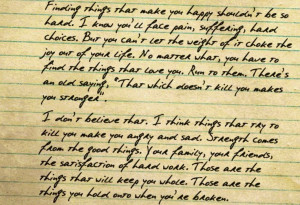 Finding things that make you happy shouldn't be so
hard. I know you'll face pain, suffering, hard
choices. But you can't let the weight of it choke the
joy out of your life. No matter what, you have to
find the things that love you. Run to them. There's
an old saying, "That which doesn't kill you makes
you stronger".
I don't believe that. I think things that try to
kill you make you angry and sad. Strength comes
from the good things. Your family, your friends,
the satisfaction of hard work. Those are the
things that will keep you whole. Those are the
things you hold onto when you're broken.